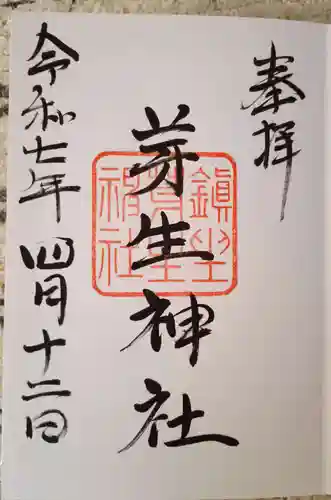 奉拝
芽生神社
令和七年四月十二日
鎮坐
芽生
神社